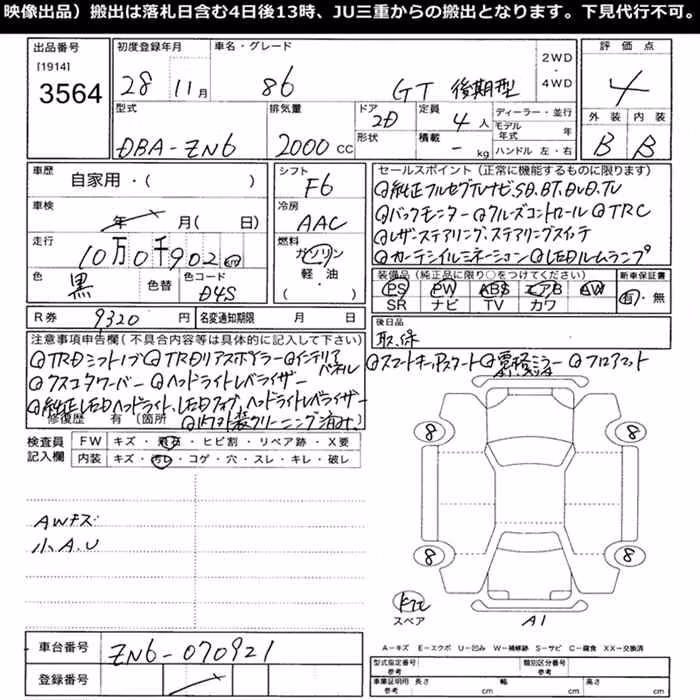 映像出品）搬出は落札日含む4日後13時、JU三重からの搬出となります。下見代行不可。
出品番号 初度登録年月 車名・グレード 評価点
[1914] 3564 28 11月 86 GT 後期型 2WD・4WD 4
型式 排気量 ドア 定員 ディーラー・並行 外装 内装
DBA-ZN6 2000cc 2D 4人 モデル年式 年 B B
形状 積載 - kg ハンドル 左・右
車歴 自家用・( ) シフト F6
車検 年 月( 日) 冷房 AAC
走行 10万0千902km 燃料 ガソリン 軽・油・( )
色 黒 色替 色コード D4S
R券 9320円 名変通知期限 月 日
セールスポイント（正常に機能するものに限ります）
◎純正フルセグTVナビ,SD.BT.DVD.TV
◎バックモニター ◎クルーズコントロール ◎TRC
◎レザーステアリング.ステアリングスイッチ
◎カーテシイルミネーション ◎LEDルームランプ
装備品（純正品に限り○をつけてください） 新車保証書
PS PW ABS エアB AW 有・無
SR ナビ TV カワ
後日品
取.保
注意事項申告欄(不具合内容等は具体的に記入して下さい)
◎TRDシフトノブ ◎TRDリアスポイラー ◎インテリアパネル
◎スマートキー ◎フロアマット
◎クスコタワーバー ◎ヘッドライトレベライザー
◎純正LEDヘッドライト、LEDフォグ、ヘッドライトレベライザー
修復歴 有 (箇所 クリーニング済み)
検査員記入欄 FW キズ・飛石・ヒビ割・リペア跡・X要
内装 キズ・汚レ・コゲ・穴・スレ・キレ・破レ
AWキズ
小A.U
8 8
8 8
スペア A1
A－キズ E－エクボ U－凹み W－補修跡 S－サビ C－腐食 XX－交換済
車台番号 ZN6-070921
登録番号
型式指定番号 参考 類別区分番号 参考
車業証明用 参考 長さ cm 幅 cm 高さ cm